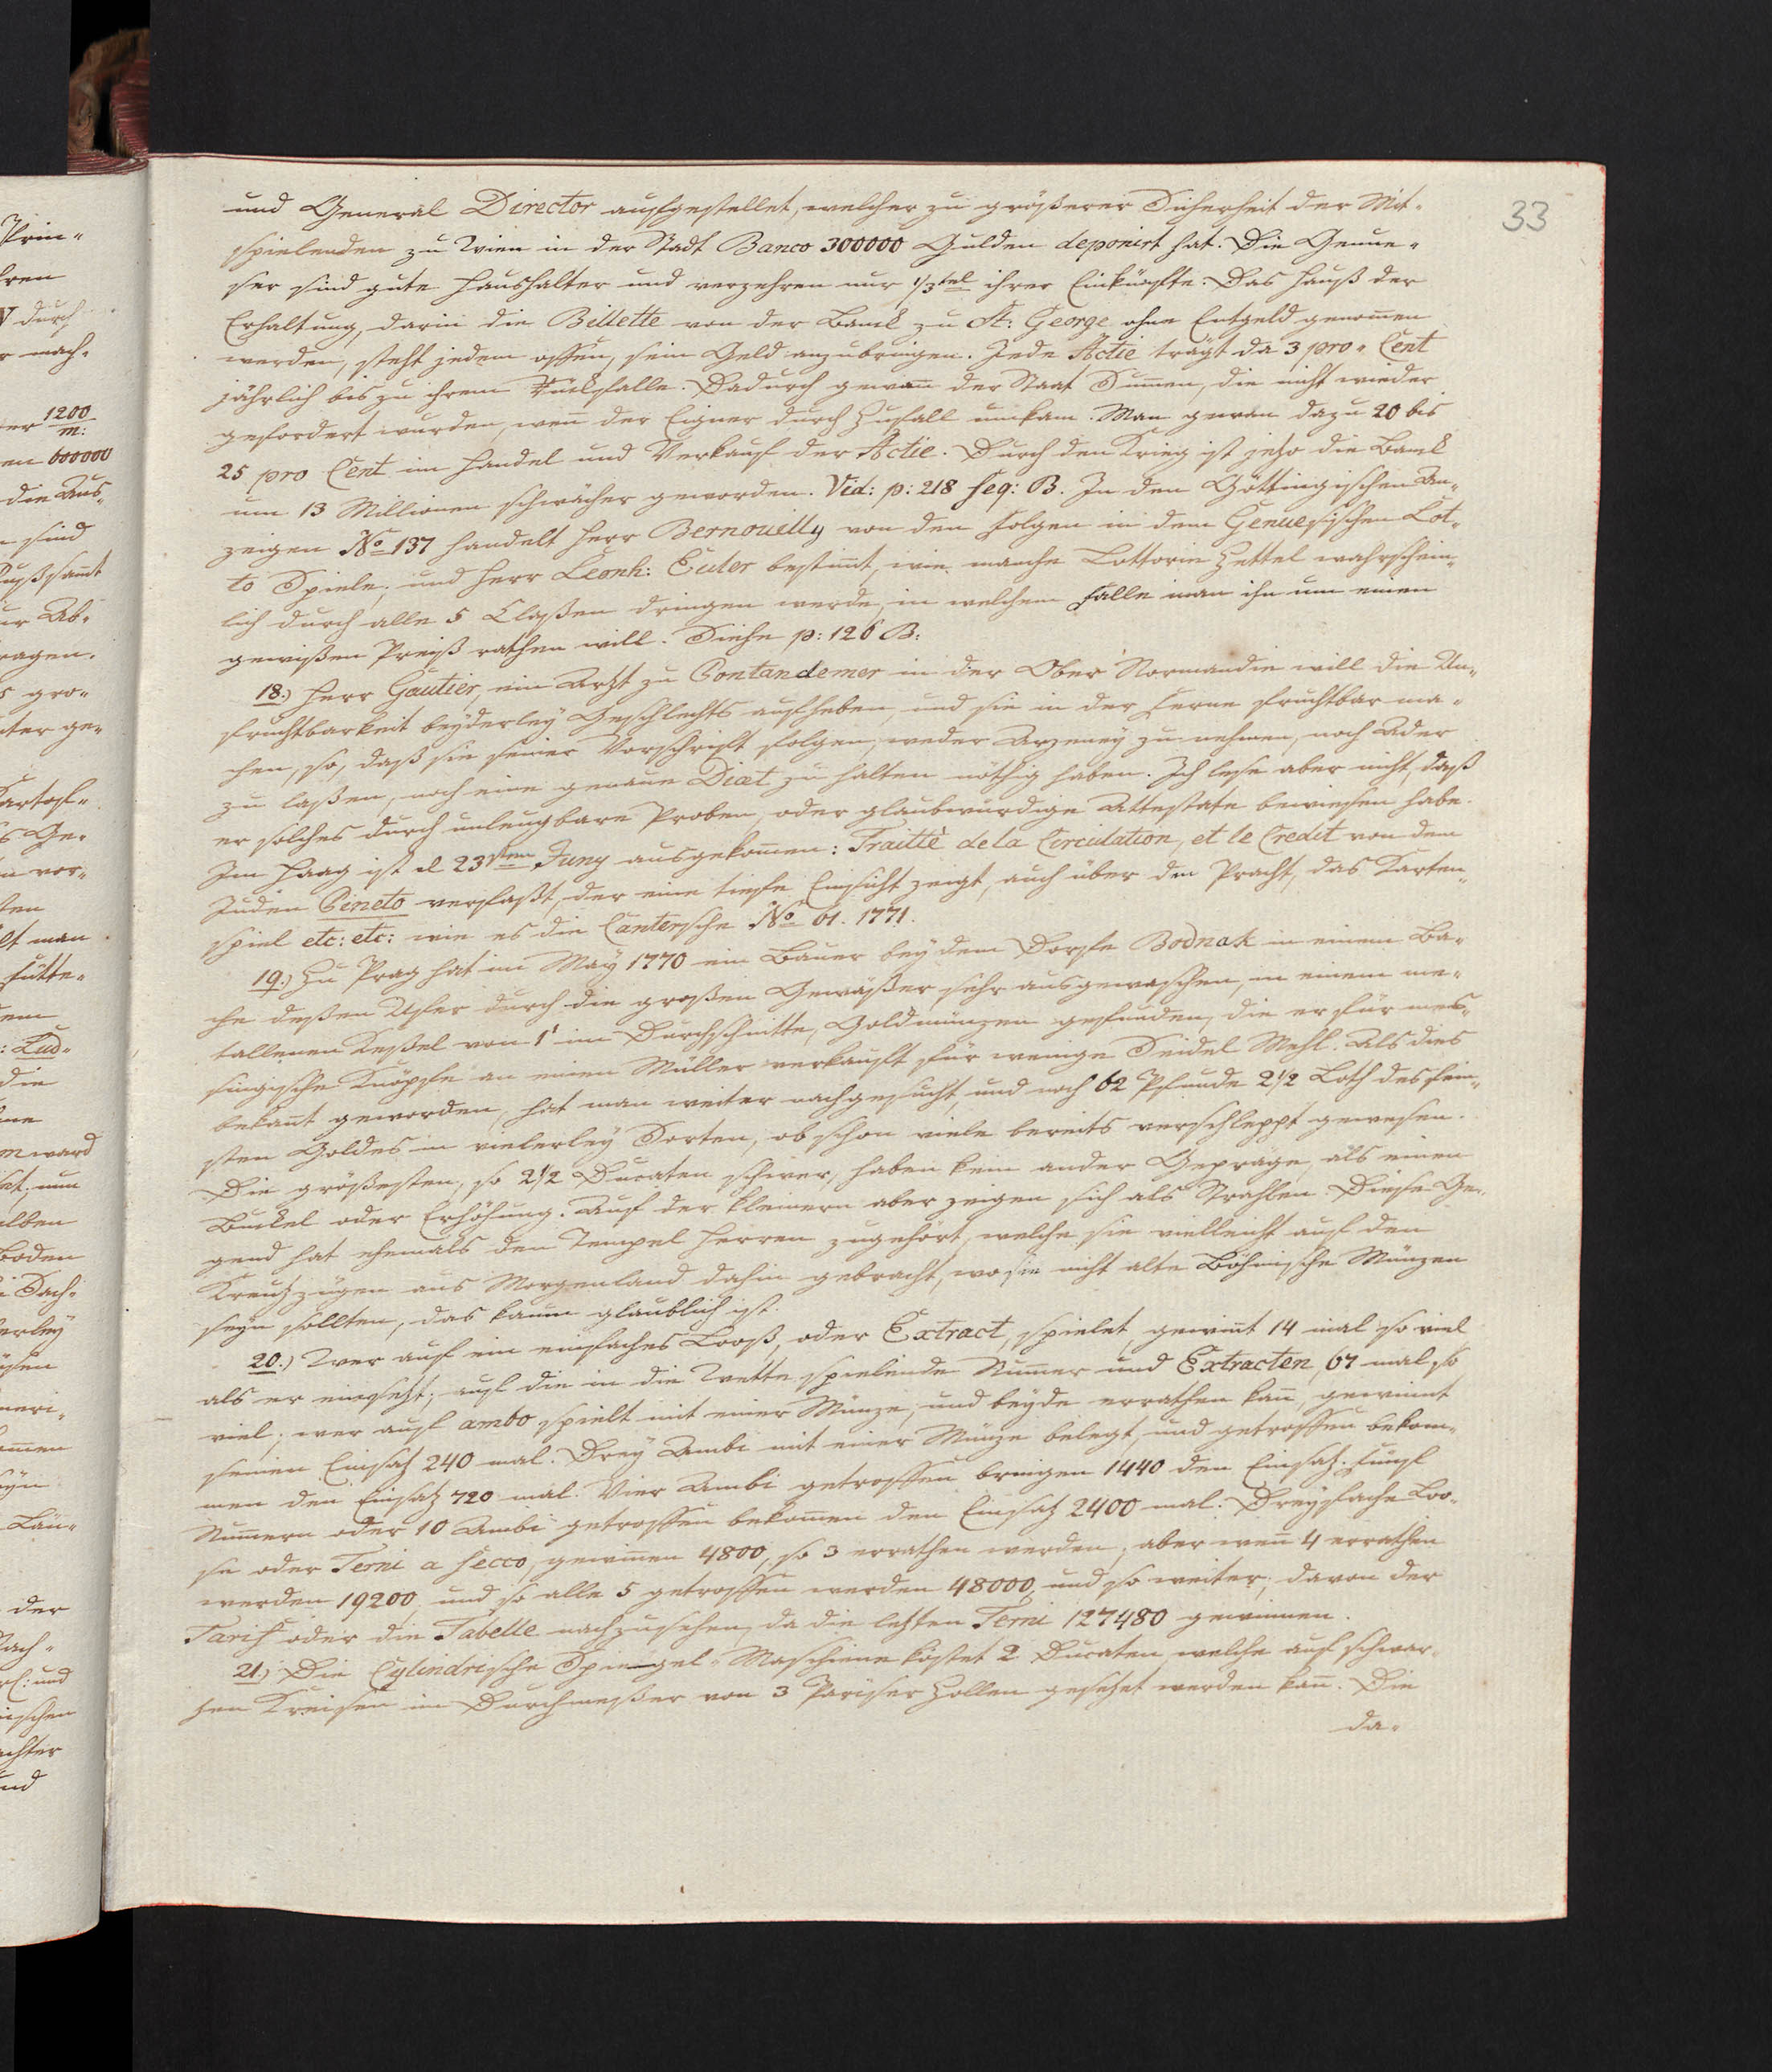 33
und General Director aufgestellet, welcher zu größerer Sicherheit der Mit-
spielenden zu Wien in der Stadt Banco 300000 Gulden deponirt hat. Die Genue-
ser sind gute Haushalter und verzehren nur 1/3tel ihrer Einkünfte. Das Hauß der
Erhaltung, darin die Billette von der Banck zu St: George ohne Entgeld genom̄en
werden, steht jedem offen, sein Geld anzubringen. Jede Actie trägt da 3 pro Cent
jährlich bis zu ihrem Rückfalle. Dadurch gewan̄ der Staat Sum̄en, die nicht wieder
gefordert wurden, wen̄ der Eigner durch Zufall umkam. Man gewan dazu 20 bis
25 pro Cent im Handel und Verkauf der Actie. Durch den Krieg ist jezo die Banck
um 13 Millionen schwächer geworden. Vid: p: 218 seq: B. In den Göttingischen An-
zeigen No 137 handelt Herr Bernouilly von den Folgen in dem Genuesischen Lot-
to Spiele; und Herr Leonh: Euler bestim̄t, wie manche Lotterie Zettel wahrschein-
lich durch alle 5 Claßen dringen werde, in welchem Falle man ihn um einen
gewißen Preiß rathen will. Siehe p: 126 B:
18.) Herr Gautier, ein Arzt zu Pontandemer in der Ober Normandie will die Un-
fruchtbarkeit beyderley Geschlechts aufheben, und sie in der Ferne fruchtbar ma-
chen, so, daß sie seiner Vorschrift folgen, weder Arzeney zu nehmen, noch Ader
zu laßen, noch eine genaue Diæt zu halten nöthig haben. Ich lese aber nicht, daß
er solches durch unleugbare Proben, oder glaubwürdige Attestate bewiesen habe.
Im Haag ist d 23sten Juny ausgekom̄en: Traitté de la Circulation, et le Credit von dem
Juden Pineto verfaßt, der eine tiefe Einsicht zeigt, auch über den Pracht, das Karten-
spiel etc: etc: wie es die Cantersche No 61. 1771.
19.) Zu Prag hat im May 1770 ein Bauer bey dem Dorfe Bodnak in einem Ba-
che deßen Ufer durch die großen Gewäßer sehr ausgewaschen, in einem me-
tallenen Keßel von 1' im Durchschnitte, Goldmünzen gefunden, die er für mes-
singische Knöpfe an einen Müller verkauft für wenige Seidel Mehl. Als dies
bekan̄t geworden, hat man weiter nachgesucht, und noch 62 Pfunde 2 1/2 Loth des fein-
sten Goldes in vielerley Sorten, ob schon viele bereits verschleppt gewesen.
Die größesten, so 2 1/2 Ducaten schwer, haben kein ander Gepräge, als einen
Buckel oder Erhöhung. Auf der kleinern aber zeigen sich als Strahlen. Diese Ge-
gend hat ehemals den Tempel Herren zugehört, welche sie vielleicht auf den
Kreutzzügen aus Morgenland dahin gebracht, wo sie nicht alte Böhmische Münzen
seyn sollten, das kaum glaublich ist.
20.) Wer auf ein einfaches Looß, oder Extract, spielet, gewin̄t 14 mal so viel
als er einsetzt; auf die in die Wette spielende Num̄er und Extracten, 67 mal so
viel; wer auf ambo spielt mit einer Münze, und beyde errathen kan̄, gewinnt
seinen Einsatz 240 mal. Drey Ambi mit einer Münze belegt, und getroffen bekom-
men den Einsatz 720 mal. Vier Ambi getroffen bringen 1440 den Einsatz. Fünf
Num̄ern oder 10 Ambi getroffen bekom̄en den Einsatz 2400 mal. Dreyfache Loo-
se oder Terni a secco, gewin̄en 4800, so 3 errathen werden; aber wen̄ 4 errathen
werden 19200, und so alle 5 getroffen werden 48000, und so weiter; davon der
Tarif oder die Tabelle nachzusehen, da die lezten Terni 127480 gewinnen.
21.) Die Cylindrische Spiegel-Maschiene kostet 2 Ducaten, welche auf schwar-
zen Kreisen im Durchmeßer von 3 Pariser Zollen gesetzet werden kan̄. Die
da-